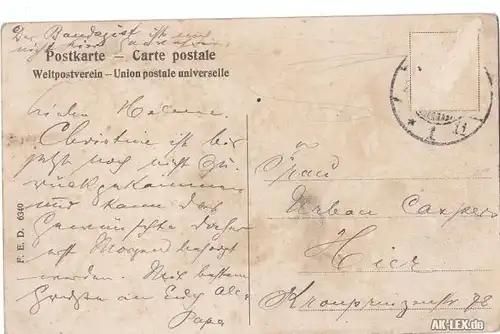 Der Bandagist ist noch
nicht hier
Postkarte — Carte postale
Weltpostverein – Union postale universelle
Christine ist bis
jetzt noch nicht zu-
rückgekommen
und kann das
Gewünschte daher
erst Morgen besorgt
werden. Mit besten
Grüßen an Euch Alle
Papa
F. E. D. 6340
Frau
Urban Casper
Hier
Kronprinzenstr 78
AK-LEX.de